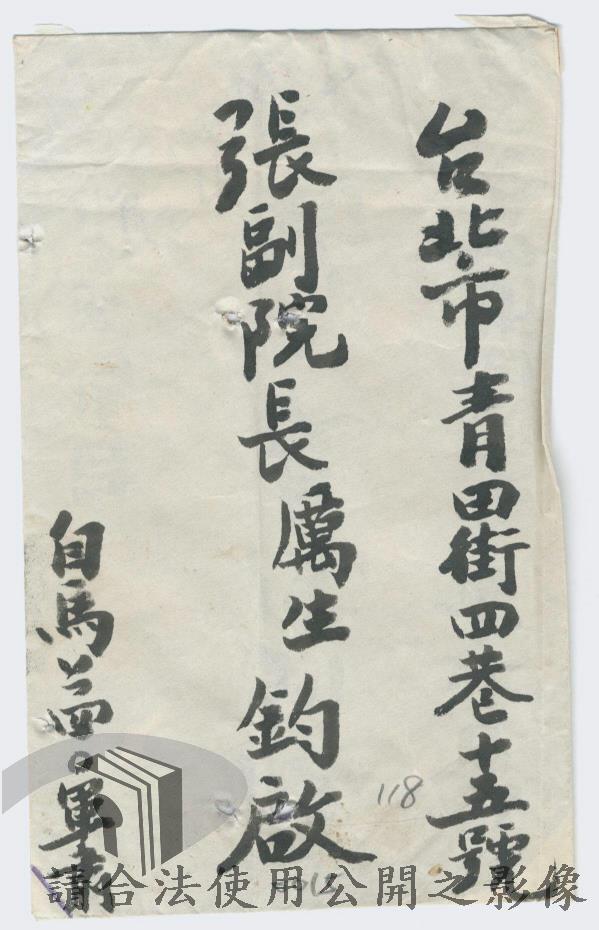 台北市青田街四巷十五號
張副院長厲生鈞啟
自馬公
軍
118
請合法使用公開之影像